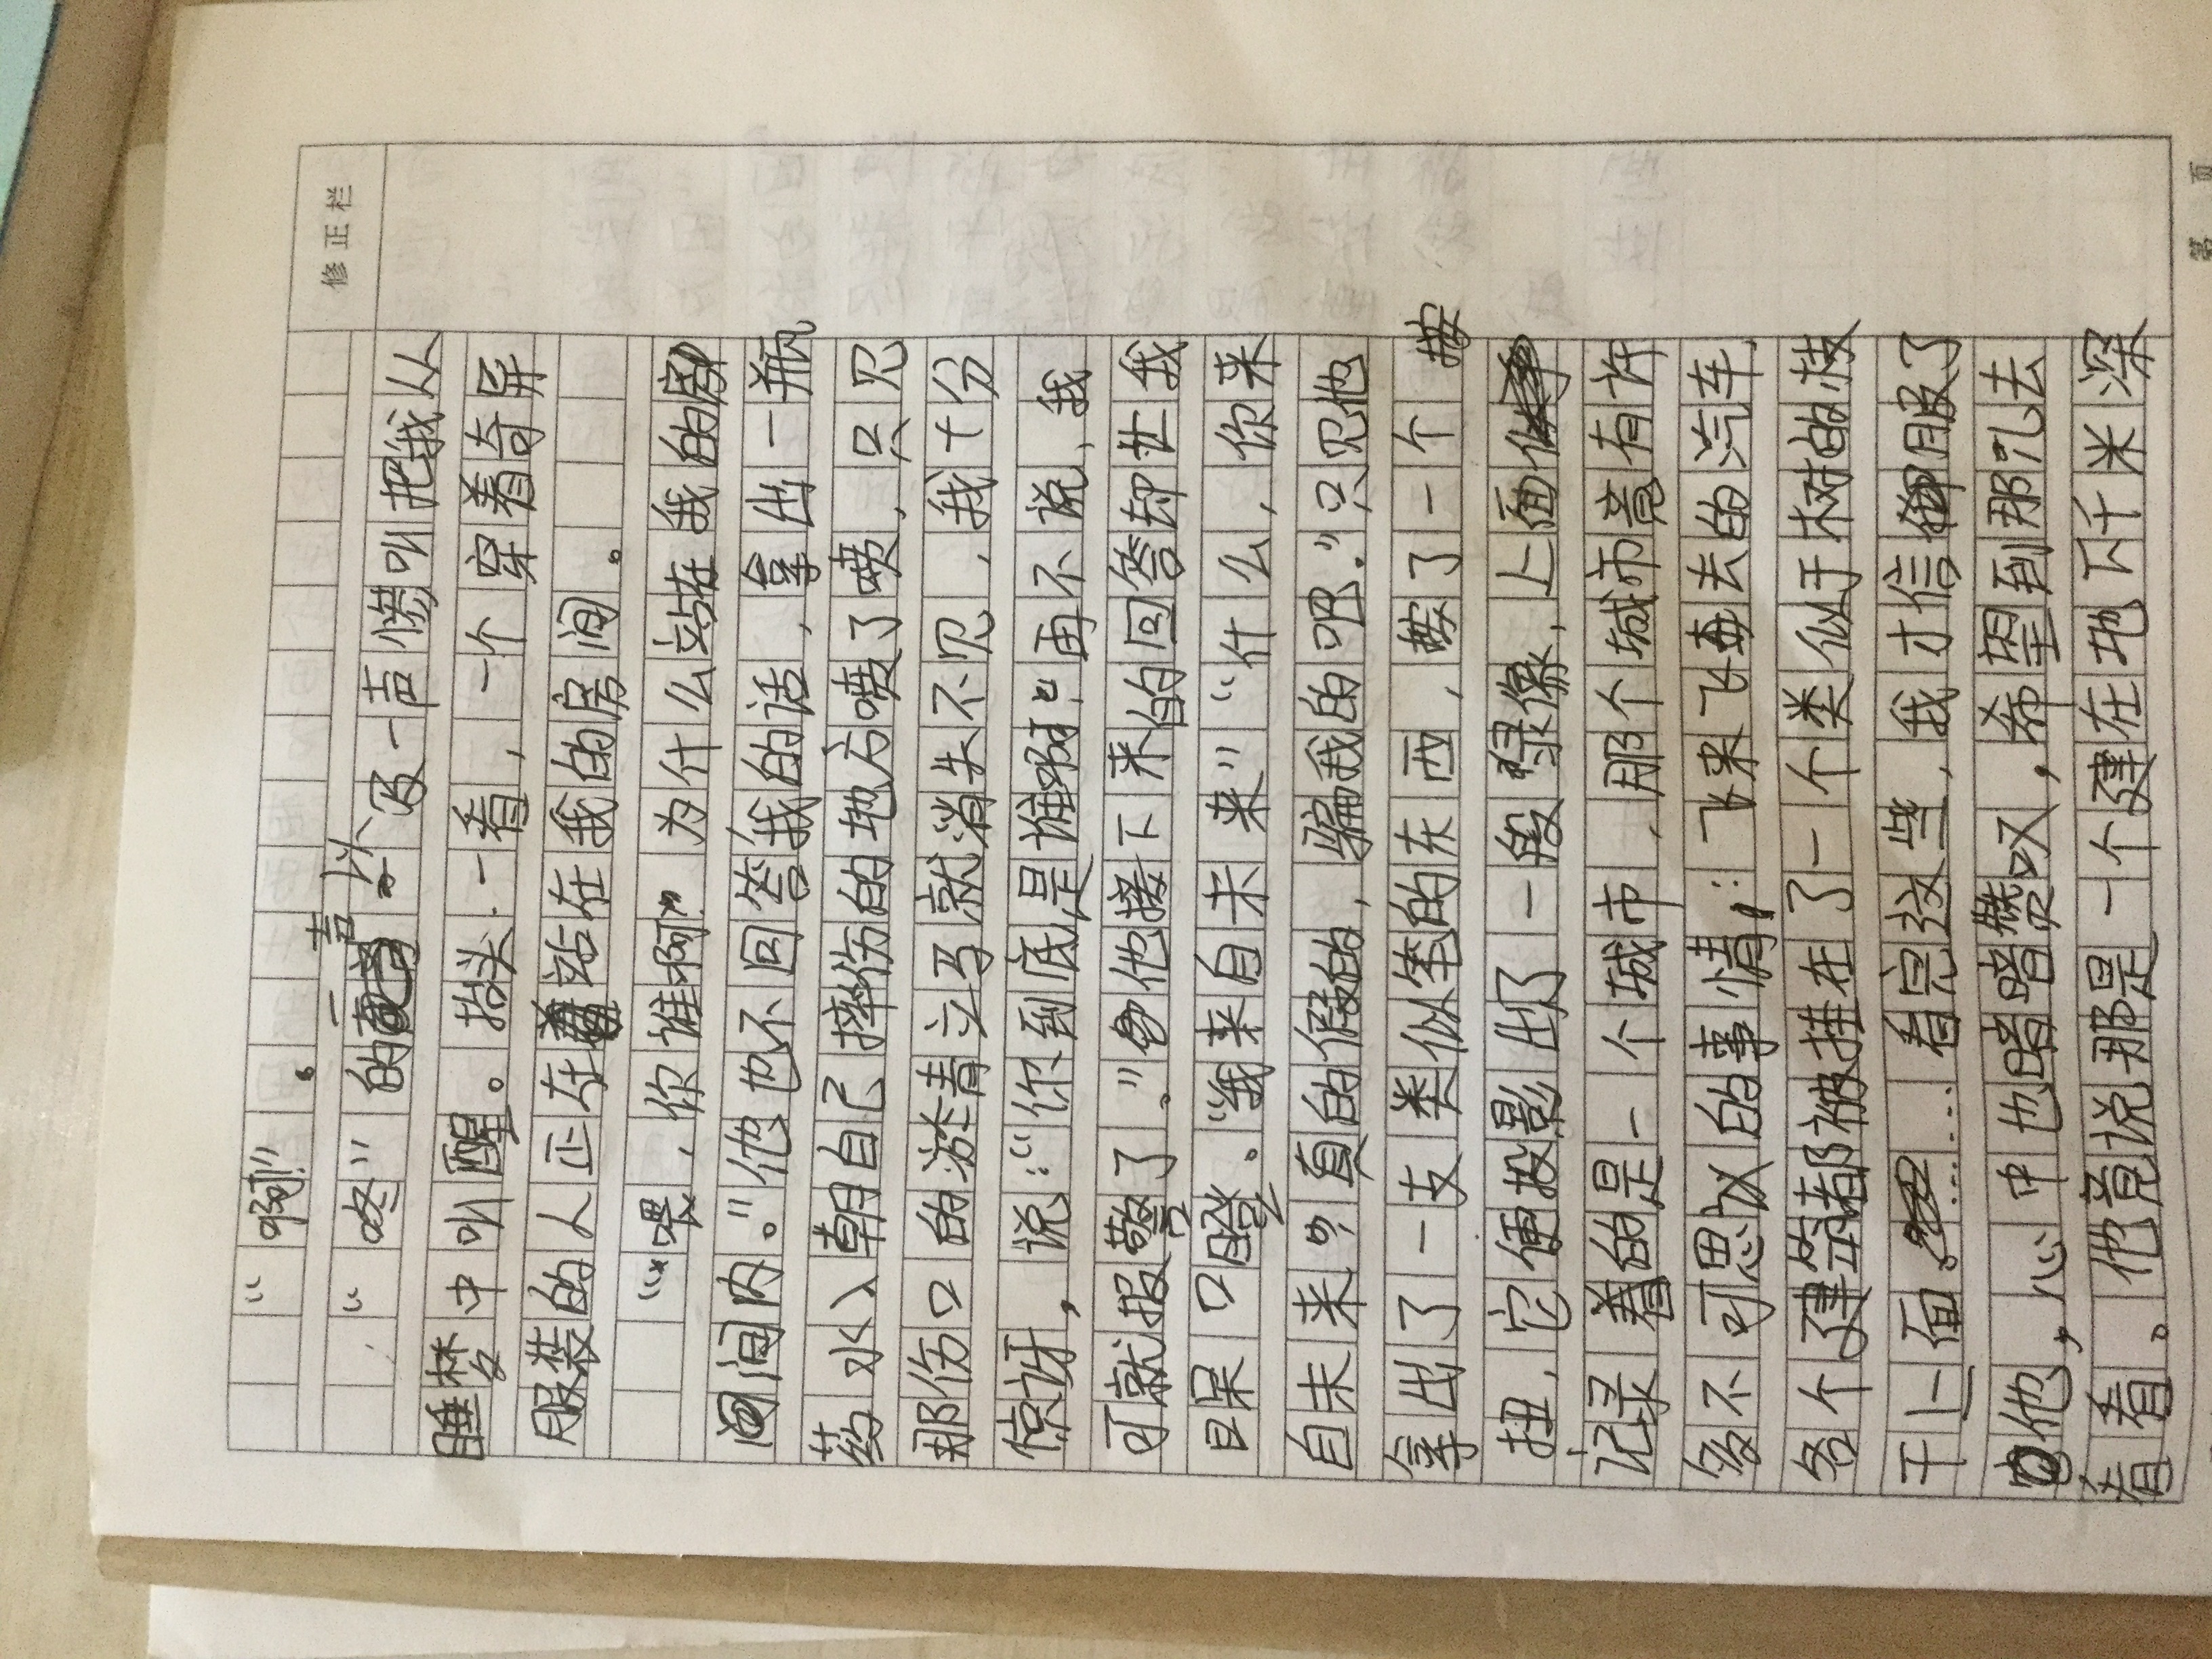 修正栏
“啊!”。
“咚”的一声,以及一声惨叫把我从
睡梦中叫醒。抬头一看,一个穿着奇异
服装的人正在站在我的房间。
“喂,你谁啊”为什么站在我的房
间内。”他也不回答我的话,拿出一瓶
药水入朝自己摔伤的地方喷了喷,只见
那伤口的淤青立马就消失不见,我十分
惊讶,说:“你到底是谁啊!”再不说,我
可就报警了。”他接下来的回答却让我
目呆口瞪。“我来自未来”“什么,你来
自未来,真的假的,骗我的吧.”只见他
拿出了一支类似笔的东西,按了一个按
扭,它便投影出了一段录像,上面
记录着的是一个城市,那个城市竟有许
多不可思议的事情:飞来飞去的汽车,
各个建筑都被挂在了一个类似于树的枝
干上面。……看完这些,我才信服了
他,心中也暗暗赞叹,希望到那儿去
看看。他竟说那是一个建在地下千米深
第 页